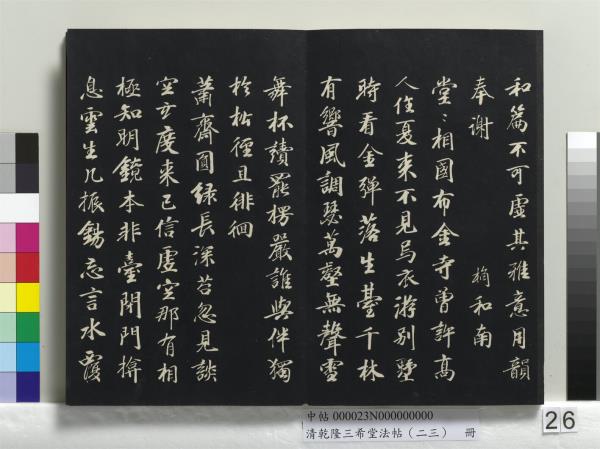 和篇不可虛其雅意用韻
奉謝 和南
堂〻相國布金寺曾許高
人住夏來不見烏衣游別墅
時看金彈落生臺千林
有響風調瑟萬壑無聲雪
舞杯讀罷楞嚴誰與伴獨
於松徑且徘徊
蕭齋圓綠長深苔忽見談
空玄度來已信虛空那有相
極知明鏡本非臺閉門揜
息雲生几振錫忘言水覆
中帖 000023N000000000
清乾隆三希堂法帖（二三） 冊
26